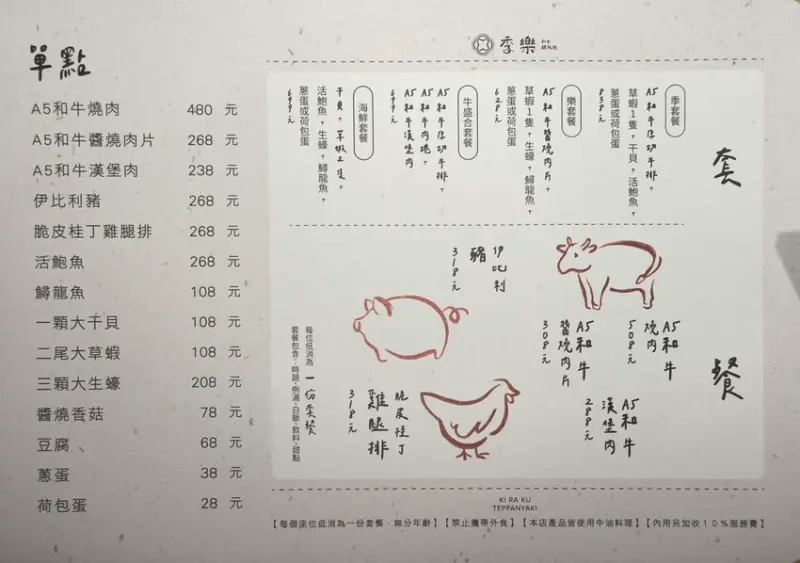 單點
A5和牛燒肉 480 元
A5和牛醬燒肉片 268 元
A5和牛漢堡肉 238 元
伊比利豬 268 元
脆皮桂丁雞腿排 268 元
活鮑魚 268 元
鱘龍魚 108 元
一顆大干貝 108 元
二尾大草蝦 108 元
三顆大生蠔 208 元
醬燒香菇 78 元
豆腐 68 元
蔥蛋 38 元
荷包蛋 28 元
季樂
套餐
季套餐
A5和牛厚切牛排,
草蝦1隻,干貝,活鮑魚,
蔥蛋或荷包蛋
838元
樂套餐
A5和牛醬燒肉片,
草蝦1隻,生蠔,鱘龍魚,
蔥蛋或荷包蛋
628元
牛盛合套餐
A5和牛厚切牛排,
A5和牛肉塊,
A5和牛漢堡肉
699元
海鮮套餐
干貝,草蝦2隻,
活鮑魚,生蠔,鱘龍魚,
蔥蛋或荷包蛋
699元
伊比利
豬
318元
A5和牛
燒肉
508元
A5和牛
醬燒肉片
308元
A5和牛
漢堡肉
288元
脆皮桂丁
雞腿排
318元
每位低消為一份套餐
套餐包含:時蔬、例湯、白飯、飲料、甜點
KI RA KU
TEPPANYAKI
【每個座位低消為一份套餐・無分年齡】【禁止攜帶外食】【本店產品皆使用牛油料理】【內用另加收10%服務費】